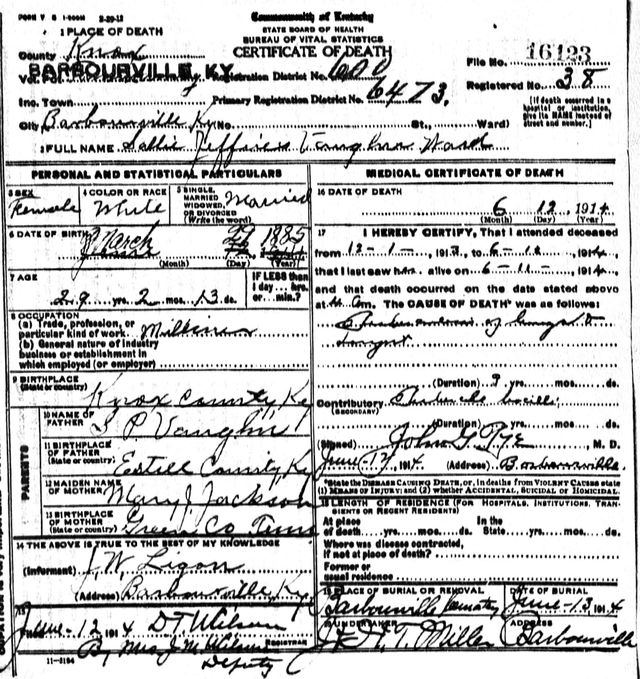 FORM V S 1-500M 2-20-12
Commonwealth of Kentucky
STATE BOARD OF HEALTH
BUREAU OF VITAL STATISTICS
CERTIFICATE OF DEATH
1 PLACE OF DEATH
County Knox
BARBOURVILLE, KY.
Registration District No. 600
File No. 16123
Inc. Town
Primary Registration District No. 6473.
Registered No. 38
City Barbourville Ky No. St., Ward)
(If death occurred in a hospital or institution, give its NAME instead of street and number.)
2 FULL NAME Sallie Jeffries Vaughn Ward
PERSONAL AND STATISTICAL PARTICULARS
3 SEX Female
4 COLOR OR RACE White
5 SINGLE, MARRIED WIDOWED, OR DIVORCED (Write the word) Married
6 DATE OF BIRTH March 29 1885
(Month) (Day) (Year)
7 AGE
29 yrs. 2 mos. 13 ds.
IF LESS than 1 day... hrs. or... min.?
8 OCCUPATION
(a) Trade, profession, or particular kind of work Milliner
(b) General nature of industry business or establishment in which employed (or employer)
9 BIRTHPLACE (State or country) Knox County Ky
PARENTS
10 NAME OF FATHER S P Vaughn
11 BIRTHPLACE OF FATHER (State or country) Estill County Ky
12 MAIDEN NAME OF MOTHER Mary J. Jackson
13 BIRTHPLACE OF MOTHER (State or country) Green Co Tenn
14 THE ABOVE IS TRUE TO THE BEST OF MY KNOWLEDGE
(Informant) Ligon
(Address) Barbourville Ky
15
Filed June-12 1914 D T Wilson
REGISTRAR
By Mrs J M Wilson
Deputy
11-3184
MEDICAL CERTIFICATE OF DEATH
16 DATE OF DEATH
6 12, 1914
(Month) (Day) (Year)
17 I HEREBY CERTIFY, That I attended deceased
from 12-1-, 1913, to 6-12, 1914
that I last saw her alive on 6-11-, 1914
and that death occurred on the date stated above
at m. The CAUSE OF DEATH* was as follows:
of lungs
(Duration) yrs. mos. ds.
Contributory (SECONDARY)
(Duration) yrs. mos. ds.
(Signed) John G. Tye M. D.
June 12, 1914 (Address) Barbourville
*State the DISEASE CAUSING DEATH, or, in deaths from VIOLENT CAUSES state (1) MEANS OF INJURY; and (2) whether ACCIDENTAL, SUICIDAL or HOMICIDAL.
18 LENGTH OF RESIDENCE (FOR HOSPITALS, INSTITUTIONS, TRANSIENTS OR RECENT RESIDENTS)
At place of death yrs. mos. ds. In the State yrs. mos. ds.
Where was disease contracted, if not at place of death?
Former or usual residence
19 PLACE OF BURIAL OR REMOVAL DATE OF BURIAL
Barbourville Cemetery June-13, 1914
20 UNDERTAKER ADDRESS
T. Miller Barbourville